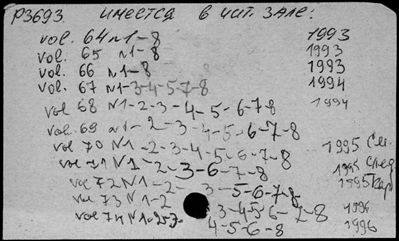 Р3693. имеется в чит. зале:
vol. 64 N1-8 1993
vol. 65 N1-8 1993
vol. 66 N1-8 1993
vol. 67 N1-3-4-5-7-8 1994
vol 68 N1-2-3-4-5-6-7-8 1994
vol. 69 N1-2-3-4-5-6-7-8
vol 70 N1-2-3-4-5-6-7-8 1995 См.
vol 71 N1-2-3-6-7-8 1995 след
vol 72 N1-2-3-5-6-7-8 1995 кар
vol 73 N1-2 3-4-5-6-7-8 1996
vol 74 N1-2 4-5-6-8 1996